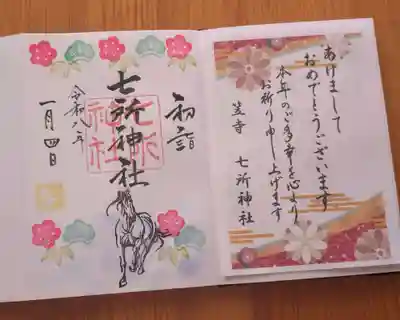 初詣
七所神社
七所
神社
令和八年
一月四日
あけまして
おめでとうございます
本年のご多幸を心より
お祈り申し上げます
笠寺 七所神社